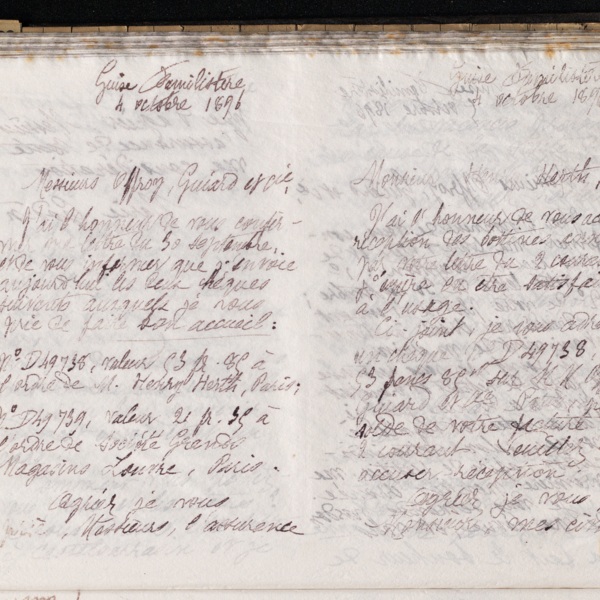 Guise Familistère
4 octobre 1896
Messieurs Offroy, Guiard et Cie,
J'ai l'honneur de vous confir-
mer ma lettre du 30 septembre,
et de vous informer que j'envoie
aujourd'hui les deux chèques
suivants auxquels je vous
prie de faire bon accueil :
No D49738, valeur 53 fr. 85 à
l'ordre de M. Henry Herth, Paris;
No D49739, valeur 21 fr. 35 à
l'ordre de Société Grands
Magasins Louvre, Paris.
Agréez je vous
prie, Messieurs, l'assurance
Guise Familistère
4 octobre 189
Monsieur Herth,
J'ai l'honneur de vous
réception des bottines
votre lettre du 2 coura
être satisfa
à l'usage.
Ci-joint je vous adre
un chèque D49738,
53 francs 85 sur
Guiard et Cie
solde de votre facture
2 courant. Veuillez
accuser réception
Agréez je vous
Monsieur, mes